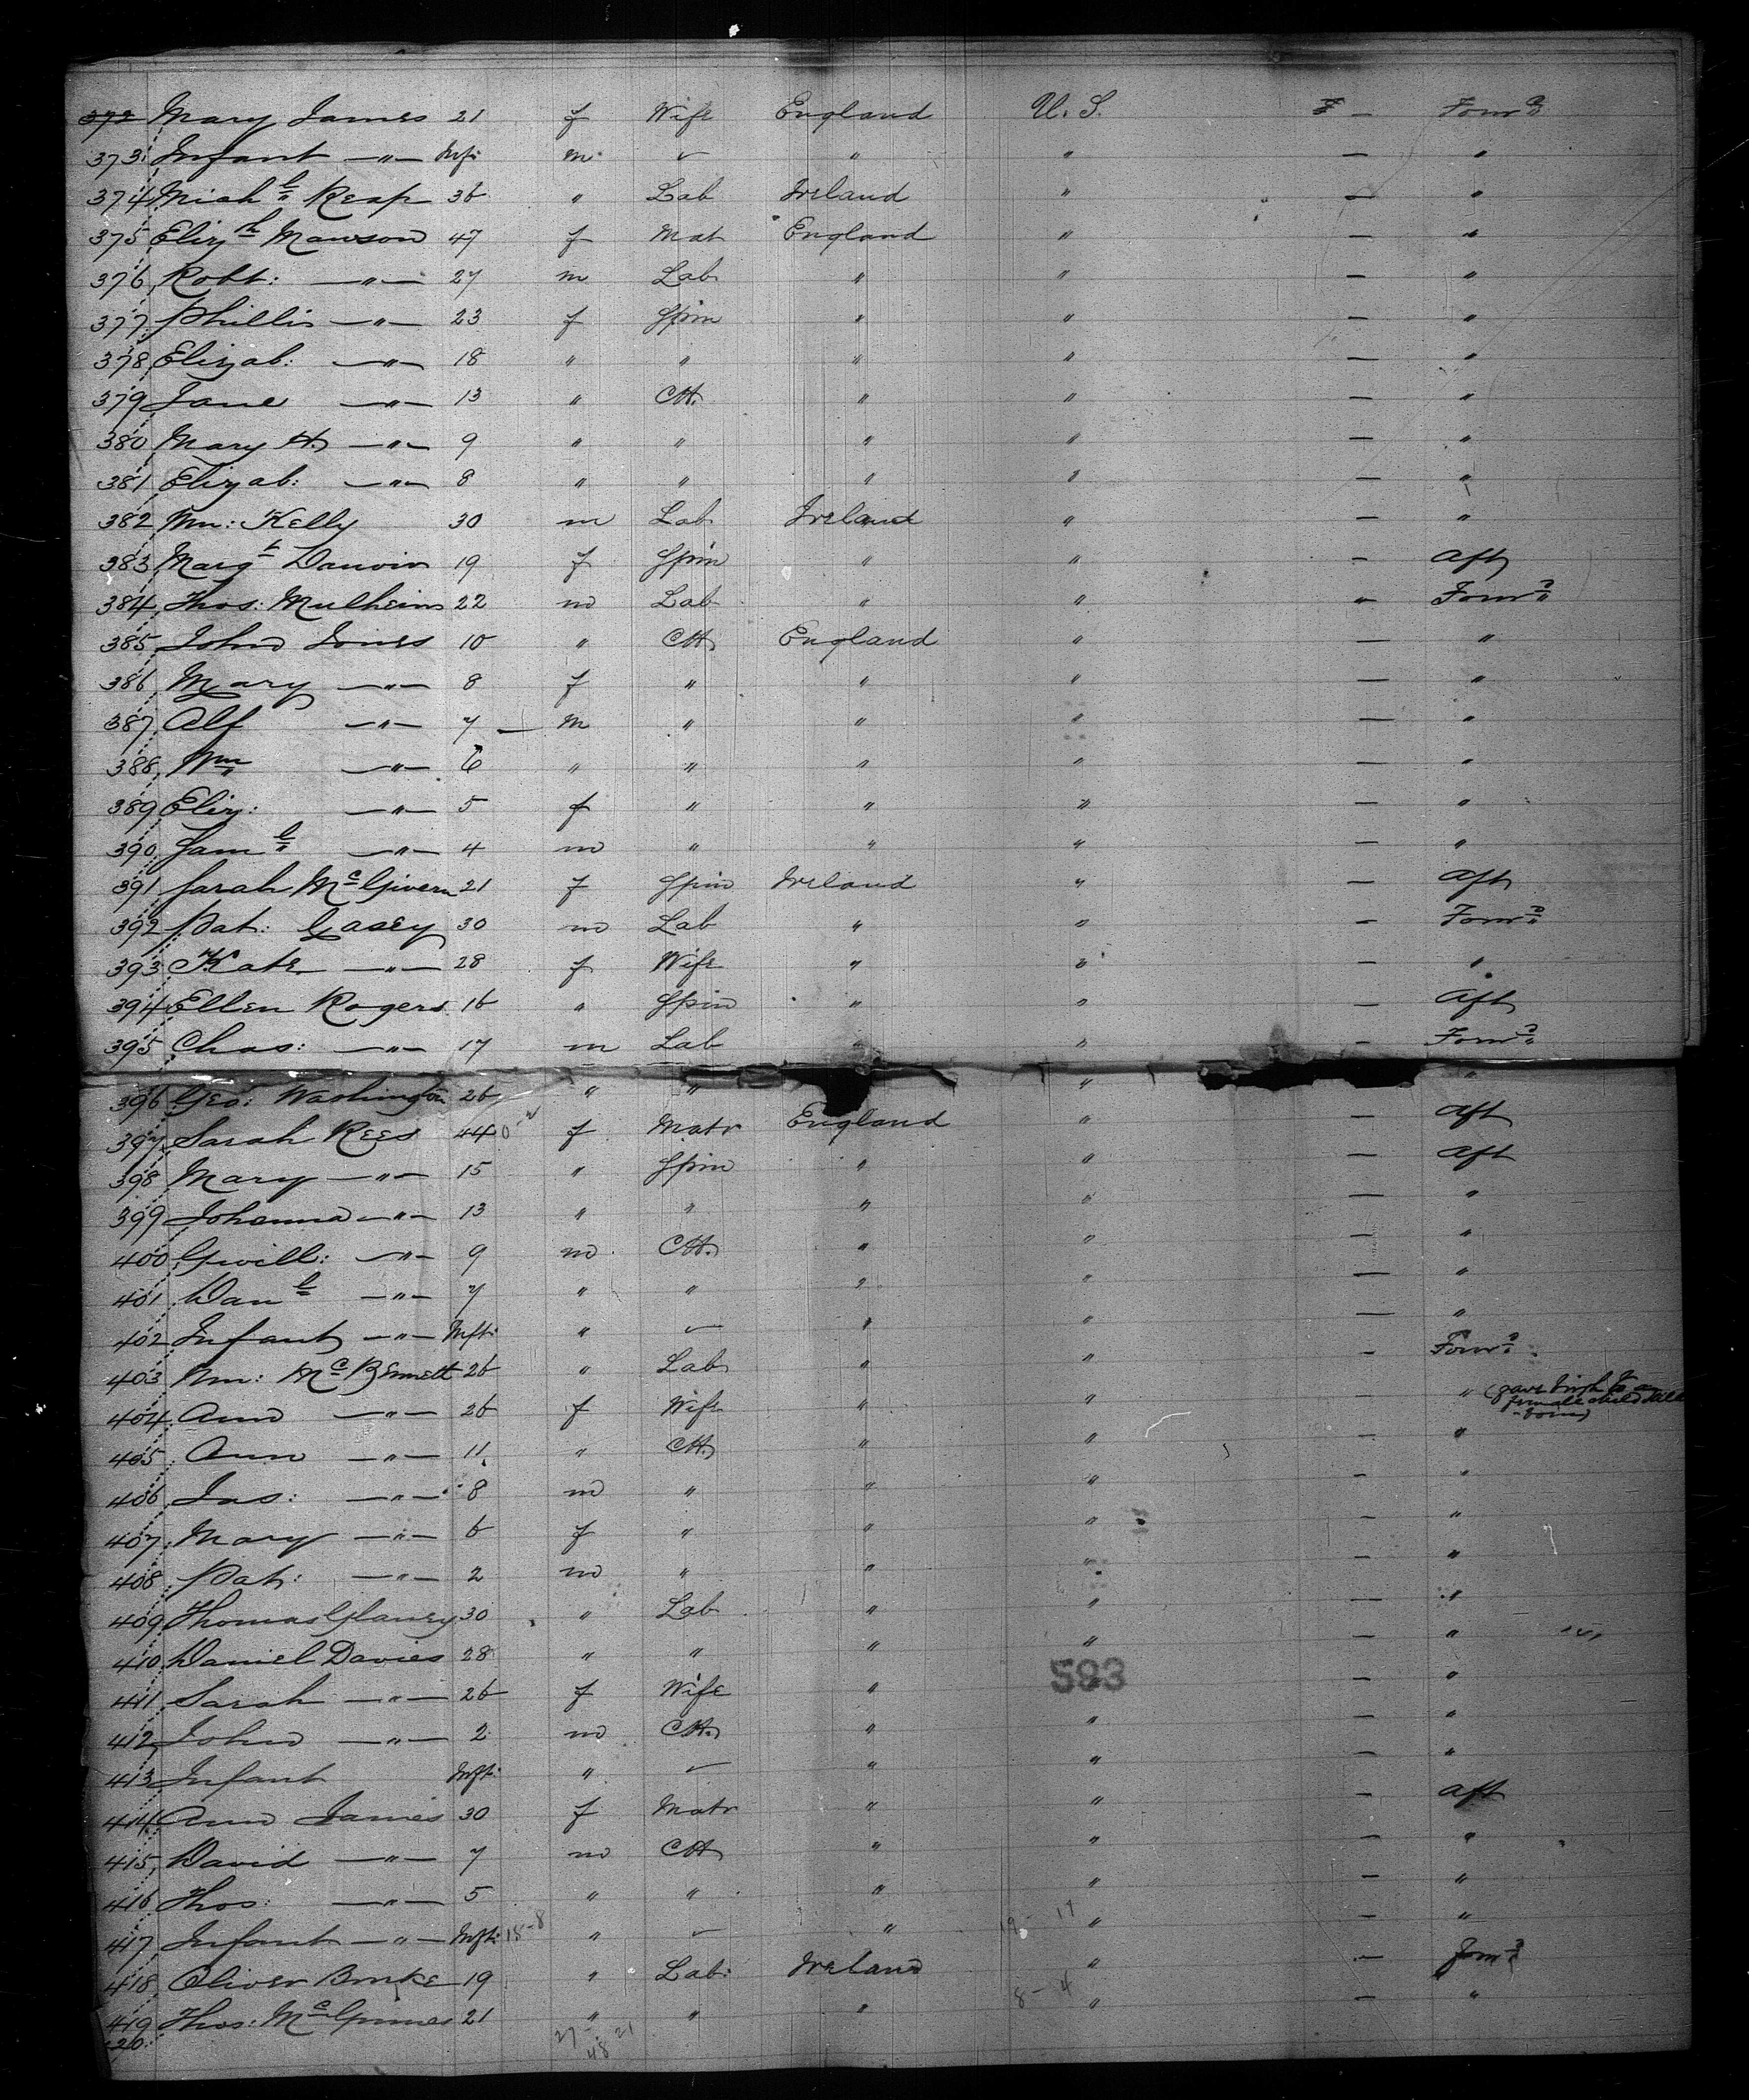 372 Mary James 21 f Wife England U. S. – Forwd
373 Infant —"— Inft: m ✓ " " — "
374 Michl Reap 36 " Lab Ireland " — "
375 Elizth Mawson 47 f Mat England " — "
376 Robt: —"— 27 m Lab " " — "
377 Phillis —"— 23 f Spin " " — "
378 Elizab: —"— 18 " " " " — "
379 Jane —"— 13 " Ch. " " — "
380 Mary H. —"— 9 " " " " — "
381 Elizab: —"— 8 " " " " — "
382 Wm: Kelly 30 m Lab Ireland " — "
383 Margt 19 f Spin " " – Aft
384 Thos: Mulheim 22 m Lab " " " Forwd
385 John Jones 10 " Ch England " — "
386 Mary —"— 8 f " " " — "
387 Alf —"— 7 — m " " " — "
388 Wm —"— 6 " " " " — "
389 Eliz: —"— 5 f " " " — "
390 Saml —"— 4 m " " " — "
391 Sarah McGivern 21 f Spin Ireland " — Aft
392 Pat: Casey 30 m Lab " " – Forwd
393 Kate —"— 28 f Wife " " – "
394 Ellen Rogers 16 " Spin " " — Aft
395 Chas: —"— 17 m Lab " " – Forwd
396 Geo: Washington 26 " " " "
397 Sarah Rees 44 f Matr England " — Aft
398 Mary —"— 15 " Spin " " — Aft
399 Johanna —"— 13 " " " " — "
400 Gwill: —"— 9 m Ch. " " — "
401 Danl —"— 7 " " " " — "
402 Infant —"— Inft: " ✓ " " — "
403 Wm: McBennett 26 " Lab " " – Forwd
404 Ann —"— 26 f Wife " " – " (gave birth to a
female child still
-born)
405 Ann —"— 11 " Ch. " " – "
406 Jas: —"— 8 m " " " – "
407 Mary —"— 6 f " " " – "
408 Pat: —"— 2 m " " " – "
409 Thomas 30 " Lab " " — "
410 Daniel Davies 28 " " " " – "
583
411 Sarah —"— 26 f Wife " – "
412 John —"— 2 m Ch. " " – "
413 Infant Inft: " ✓ " " – "
414 Ann James 30 f Matr " " – Aft
415 David —"— 7 m Ch " " – "
416 Thos: —"— 5 " " " " – "
417 Infant —"— Inft: 18-8 " ✓ " 19- 17 " – "
418 Oliver Burke 19 " Lab: Ireland " — Forwd
419 Thos: 21 " " " 8 - 4 " – "
420: 27- 21
48